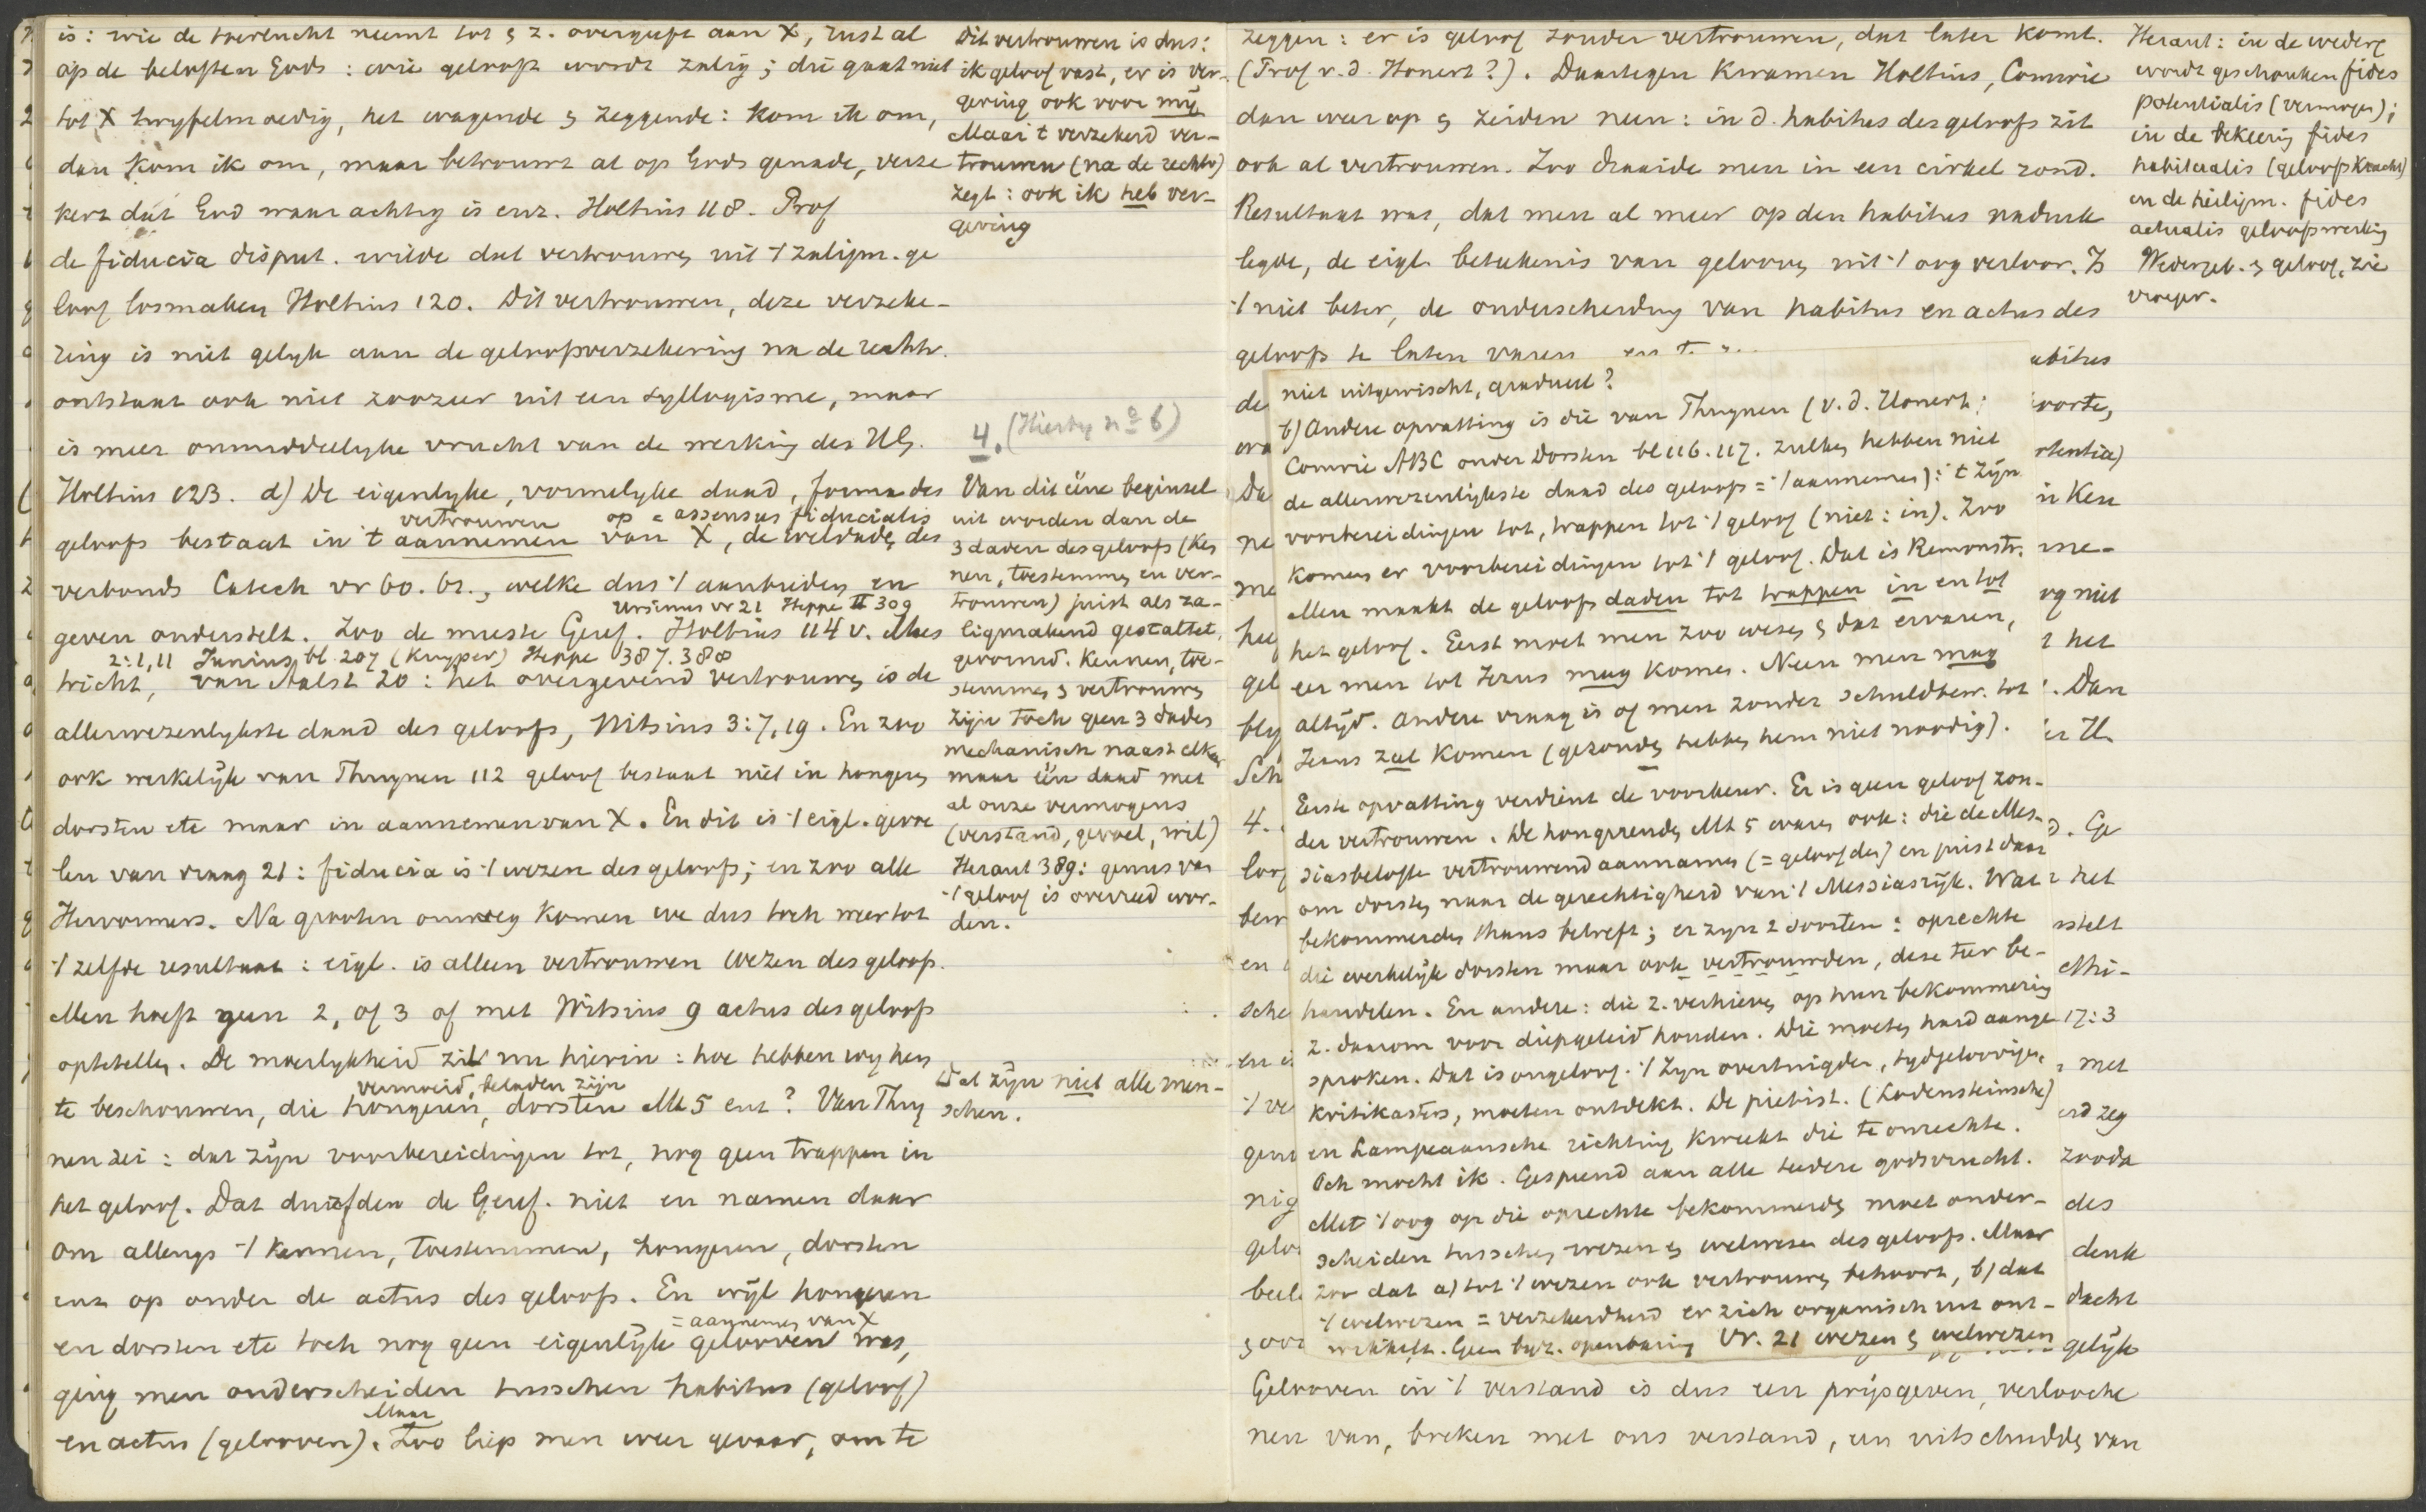 is: wie de toevlucht neemt tot & z. overgeeft aan X, rust al
op de beloften Gods: wie gelooft wordt zalig; die gaat niet
tot X twyfelmoedig, het wagende & zeggende: kom ik om,
dan kom ik om, maar betrouwt al op Gods genade, verze
kert dat God waarachtig is enz. Holtius 118. Prof
de fiducia disput. wilde dat vertrouwen uit 't zaligm. ge
loof losmaken Holtius 120. Dit vertrouwen, deze verzeke-
ring is niet gelyk aan de geloofsverzekering na de rechtv.
ontstaat ook niet zoozeer uit een syllogisme, maar
is meer onmiddellyke vrucht van de werking des HG.
Holtius 123. d) De eigenlyke, vormelyke daad, forma des
vertrouwen op = assensus fiducialis
geloofs bestaat in 't aannemen van X, de weldaden des
verbonds Catech vr 60. 61., welke dus 't aanbieden en
Ursinus vr 21 Heppe II 309
geven onderstelt. Zoo de meeste Geref. Holtius 114 v. Maes
2:1,11 Junius bl. 207 (Kuyper) Heppe 387. 388
tricht, van Aalst 20: het overgevend vertrouwen is de
allerwezenlykste daad des geloofs, Witsius 3:7,19. En zoo
ook werkelijk van Thuynen 112 geloof bestaat niet in hongeren
dorsten etc maar in aannemen van X. En dit is 't eigl. gevoe
len van vraag 21: fiducia is 't wezen des geloofs; en zoo alle
Hervormers. Na grooten omweg komen we dus toch weer tot
't zelfde resultaat: eigl. is alleen vertrouwen wezen des geloofs.
Men hoeft geen 2, of 3 of met Witsius 9 actus des geloofs
optetellen. De moeilykheid zit nu hierin: hoe hebben wy hen
vermoeid, beladen zijn
te beschouwen, die hongeren, dorsten Mt 5 enz? Van Thuy
nen zei: dat zijn voorbereidingen tot, nog geen trappen in
het geloof. Dat durfden de Geref. niet en namen daar
om allengs 't kennen, toestemmen, hongeren, dorsten
enz op onder de actus des geloofs. En wijl hongeren
= aannemen van X
en dorsten etc toch nog geen eigenlijk gelooven was,
ging men onderscheiden tusschen habitus (geloof)
Maar
en actus (gelooven). Zoo liep men weer gevaar, om te
Dit vertrouwen is dus:
ik geloof vast, er is ver-
geving ook voor mij
Maar 't verzekerd ver-
trouwen (na de rechtv)
zegt: ook ik heb ver-
geving
4. (Hierby no 6)
Van dit ééne beginsel
uit worden dan de
3 daden des geloofs (ken
nen, toestemmen en ver-
trouwen) juist als za-
ligmakend gestaltet,
gevormd. Kennen, toe-
stemmen & vertrouwen
zijn toch geen 3 daden
mechanisch naast elkaar
maar één daad met
al onze vermogens
(verstand, gevoel, wil)
Heraut 389: genus van
't geloof is overreed wor-
den.
Dat zijn niet alle men-
schen.
zeggen: er is geloof zonder vertrouwen, dat later komt.
(Prof v. d. Honert?). Daartegen kwamen Holtius, Comrie
dan weer op & zeiden neen: in d. habitus des geloofs zit
ook al vertrouwen. Zoo draaide men in een cirkel rond.
Resultaat was, dat men al meer op den habitus nadruk
legde, de eigl. beteekenis van gelooven uit 't oog verloor. Is
't niet beter, de onderscheiding van habitus en actus des
geloofs te laten varen
Heraut: in de wederg
wordt geschonken fides
potentialis (vermogen);
in de bekeering fides
habitualis (geloofskracht)
en de heiligm. fides
actualis geloofswerking
Wedergeb. & geloof, zie
vroeger.
niet uitgewischt, gradueel?
b) Andere opvatting is die van Thuynen (v. d. Honert;
Comrie ABC onder Dorsten bl 116. 117. zulken hebben niet
de allerwezenlijkste daad des geloofs = 't aannemen): 't zijn
voorbereidingen tot, trappen tot 't geloof (niet: in). Zoo
komen er voorbereidingen tot 't geloof. Dat is Remonstr.
Men maakt de geloofsdaden tot trappen in en tot
het geloof. Eerst moet men zoo wezen & dat ervaren,
eer men tot Jezus mag komen. Neen men mag
altijd. Andere vraag is of men zonder schuldbew. tot
Jezus zal komen (gezonden hebben hem niet noodig).
Eerste opvatting verdient de voorkeur. Er is geen geloof zon-
der vertrouwen. De hongerenden Mt 5 waren ook: die de Mes-
siasbelofte vertrouwend aannamen (= geloofden) en juist daar
om dorsten naar de gerechtigheid van 't Messiasrijk. Wat
bekommerden thans betreft; er zyn 2 soorten: oprechte
die werkelijk dorsten maar ook vertrouwden, deze teer be-
handelen. En andere: die z. verhieven op hun bekommering
z. daarom voor diepgeleid houden. Die moeten hard aange
sproken. Dat is ongeloof. 't Zyn overtuigden, tydgeloovigen,
kritikasters, moeten ontdekt. De pietist. (Lodensteinsche)
en Lampeaansche richting kweekt die te onrechte.
Och mocht ik. Gespeend aan alle teedere godsvrucht.
Met 't oog op die oprechte bekommerden moet onder-
scheiden tusschen wezen & welwezen des geloofs. Maar
zoo dat a) tot 't wezen ook vertrouwen behoort, b) dat
't welwezen = verzekerdheid er zich organisch uit ont-
wikkelt. Geen byz. openbaring Vr. 21 wezen & welwezen
Gelooven in 't verstand is dus een prijsgeven, verlooche
nen van, breken met ons verstand, een uitschudden van